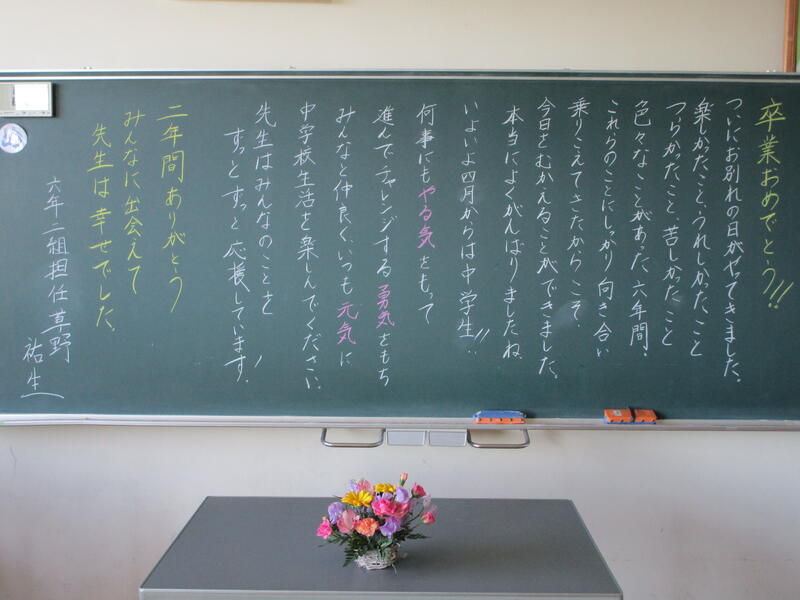 卒業おめでとう!!
ついにお別れの日がやってきました。
楽しかったこと、うれしかったこと
つらかったこと、苦しかったこと
色々なことがあった六年間。
これらのことにしっかり向き合い
乗りこえてきたからこそ、
今日をむかえることができました。
本当によくがんばりましたね。
いよいよ四月からは中学生!!
何事にもやる気をもって
進んでチャレンジする勇気をもち
みんなと仲良く、いつも元気に
中学校生活を楽しんでください。
先生はみんなのことを
ずっとずっと応援しています!
二年間ありがとう
みんなに出会えて
先生は幸せでした。
六年二組担任草野
祐生